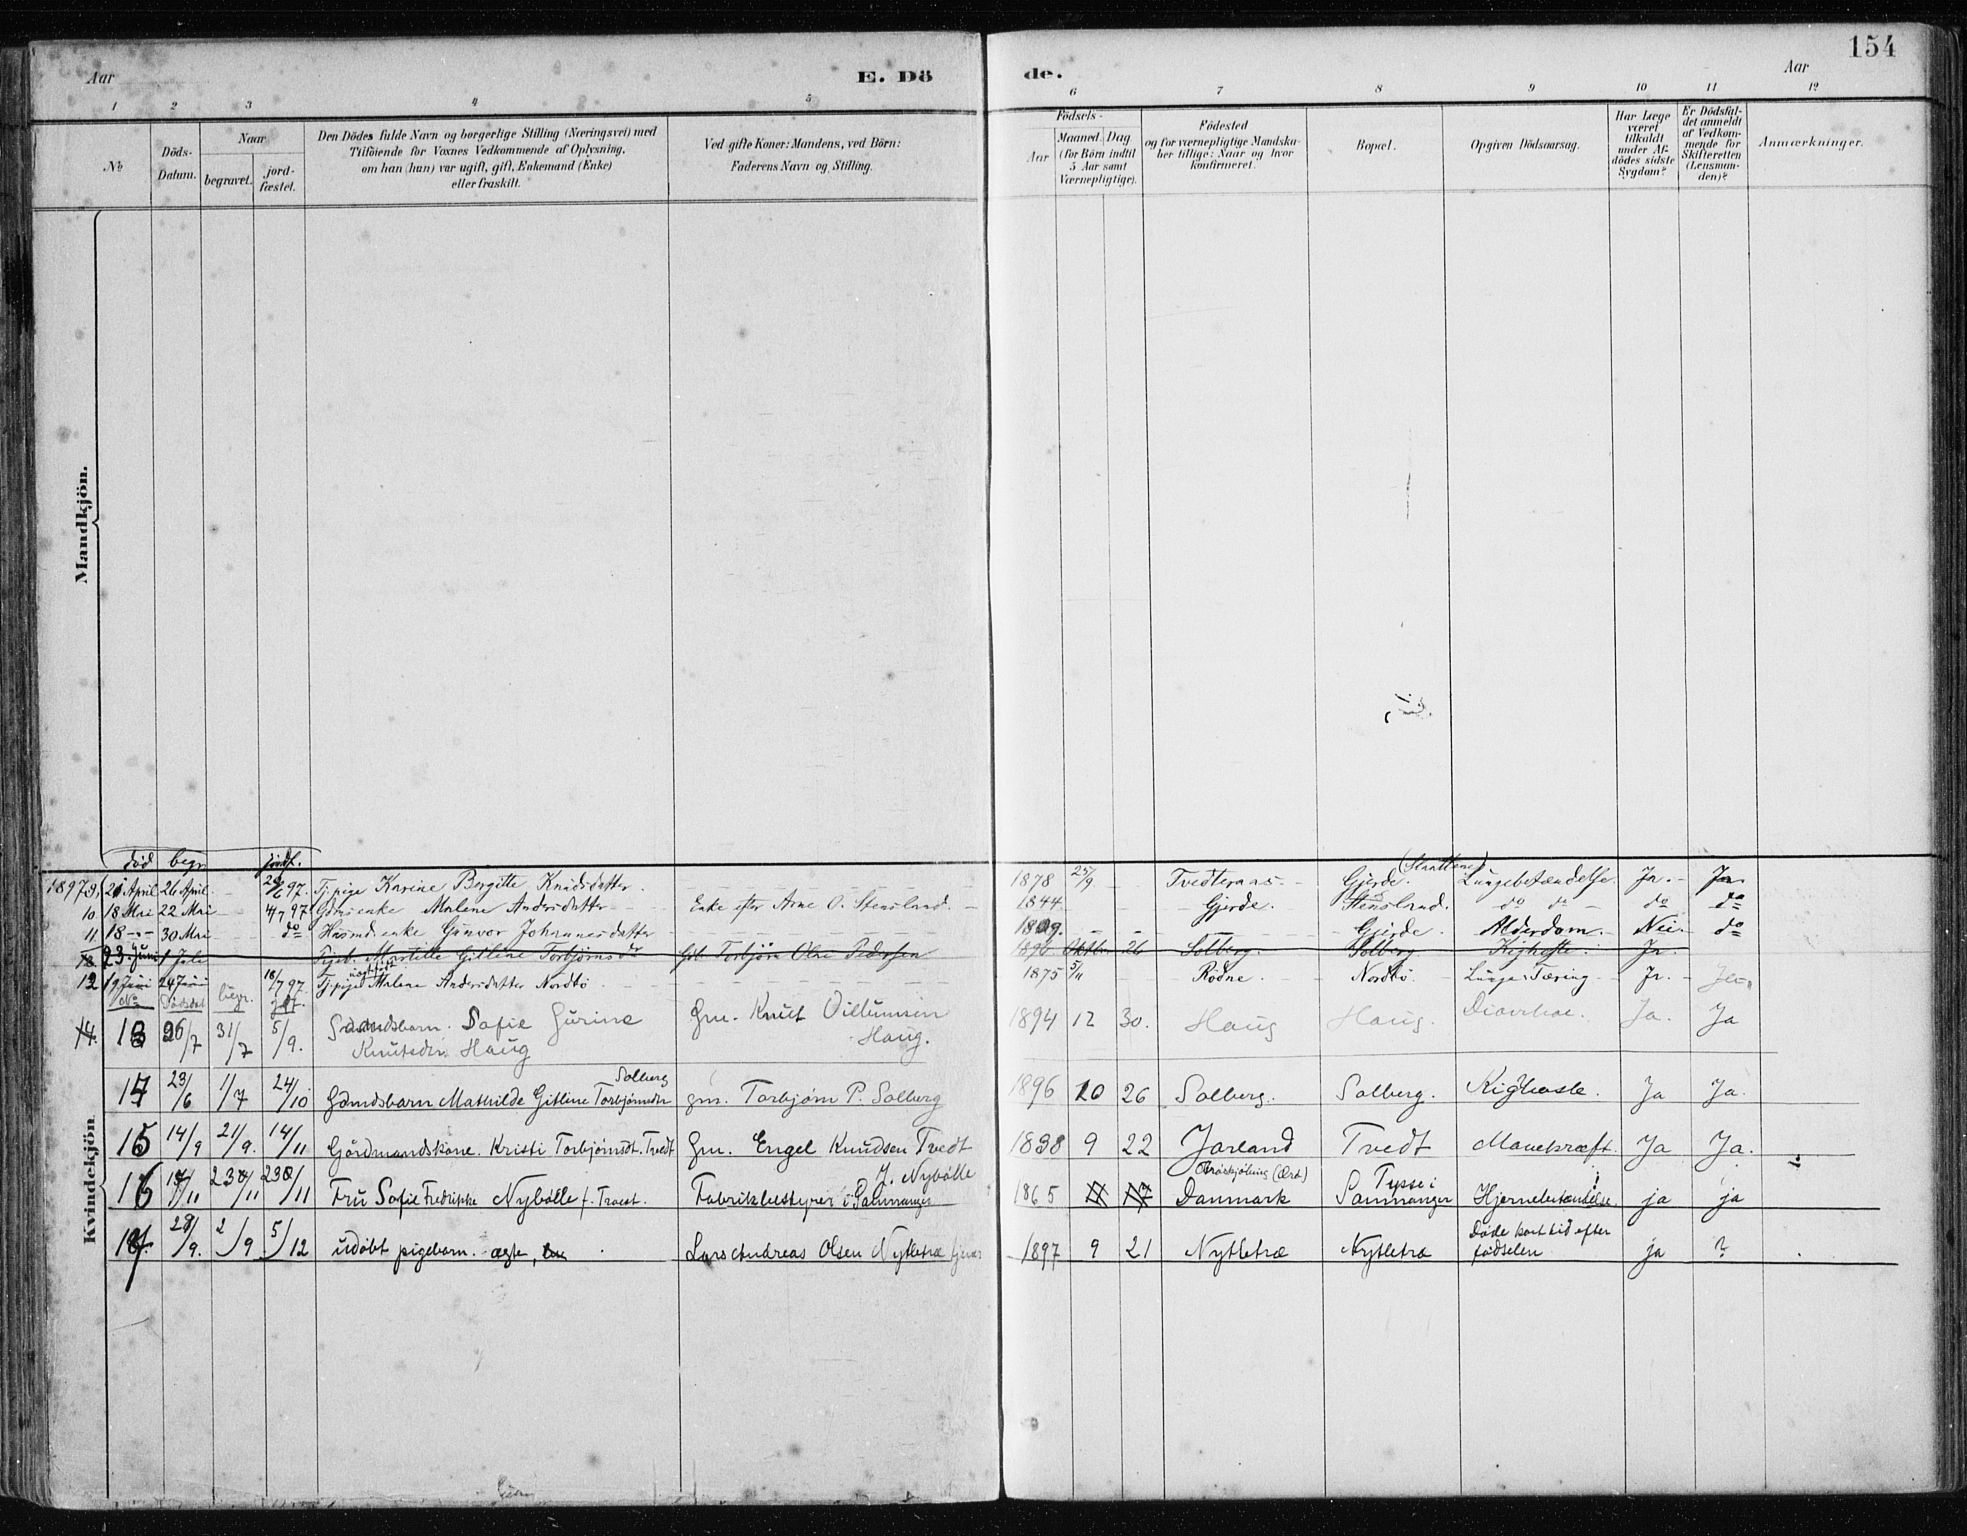 154
Aar
E. Dö
de.
Aar
1 2 3 4 5 6 7 8 9 10 11 12
No
Döds-Datum.
Naar
begravet.
jord-fæstet.
Den Dödes fulde Navn og borgerlige Stilling (Næringsvei) med
Tilföiende for Voxnes Vedkommende af Oplysning,
om han (hun) var ugift, gift, Enkemand (Enke)
eller fraskilt.
Ved gifte Koner: Mandens, ved Börn:
Faderens Navn og Stilling.
Födsels-
Aar
Maaned. Dag
(for Börn indtil
5 Aar samt
Værnepligtige).
Födested
og for værnepligtige Mandska-
ber tillige: Naar og hvor
konfirmeret.
Bopæl.
Opgiven Dödsaarsag.
Har Læge
været
tilkaldt
under Af-
dödes sidste
Sygdom?
Er Dödsfal-
det anmeldt
af Vedkom-
mende for
Skifteretten
(Lensman-
den)?
Anmærkninger.
Mandkjön.
Kvindekjön
död begr jordf.
1897 9. 21 April 26 April. 97. Tj. pige Karine Bergitte Knudsdatter. 1878 25/9 Gjerde. Lungebetændelse. Ja. Ja.
10 18 Mai 22 Mai 4/7 97 Gdmdsenke Malene Andersdatter Enke efter Arne O. Stensland. 1844 Gjerde. Stensland. do do do do
11 18 - 30 Mai do Husmdsenke Gunvor Johannesdatter 1809. Gjerde. Alderdom. Nei. do
23 Juni 1 Juli Torbjørnsdr Torbjørn Olai Pedersen 1896 Oktbr. 26 Solberg. Solberg Kighoste Ja
12 19 Juni 24 Juni 18/7 97 Tj. pige Malene Andersdatter Nordbö 1875 5/11 Rödne. Nordbö. Lunge Tæring Ja.
No Dödsdat begr. jdf.
14. 13 26/7 31/7 5/9. Gaardmdsbarn. Sofie Gurine Knutsdtr. Haug Gm. Knut Villumsen Haug. 1894 12 30. Haug Haug. Diarrhoe. Ja. Ja
14 23/6 1/7 24/10 Gdmdsbarn Mathilde Gitline Torbjørnsdtr Solberg gm. Torbjørn P. Solberg 1896 10 26 Solberg. Solberg. Kighoste. Ja Ja.
15 14/9 21/9. 14/11 Gårdmandskone. Kristi Torbjørnsdt. Tvedt Gm. Engel Knudsen Tvedt 1838 9 22 Jarland Tvedt Mavekræft. Ja Ja.
16 /11 23/11 23/11 Fru Sofie Fredrikke Nybölle f. Fabrikbestyrer i Samnanger J. Nybölle 1865 Danmark Tysse i Samnanger Hjernebetændelse. ja ja
17 /9. 2/9 5/12 udöbt pigebarn. ægte, Lars Andreas Olsen Nytletræ 1897 9 21 Nytletræ Nytletræ Döde kort tid efter födselen ja ?